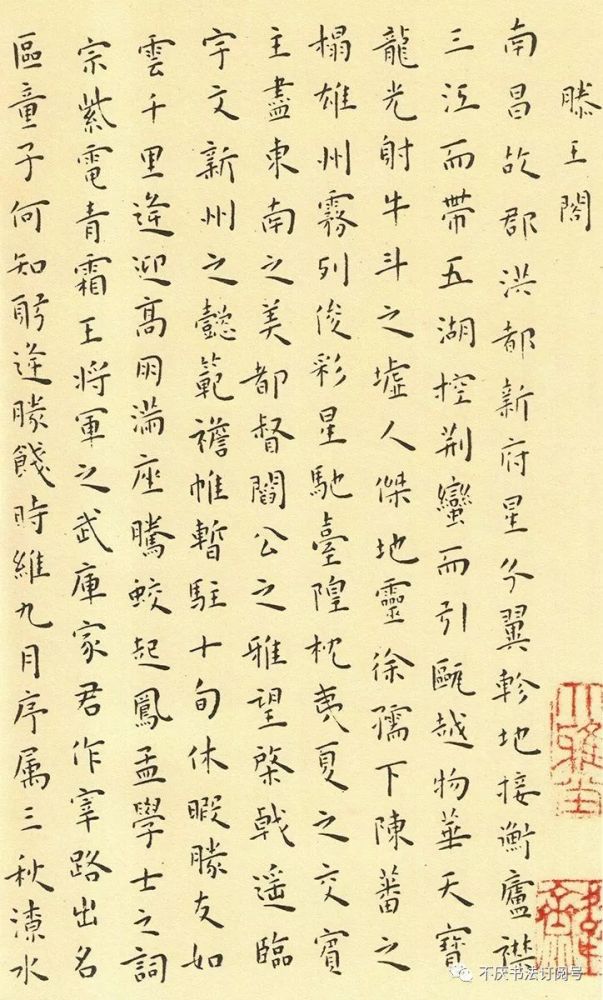 滕王閣
南昌故郡洪都新府星分翼軫地接衡廬襟
三江而帶五湖控荆蠻而引甌越物華天寶
龍光射牛斗之墟人傑地靈徐孺下陳蕃之
榻雄州霧列俊彩星馳臺隍枕夷夏之交賓
主盡東南之美都督閻公之雅望棨戟遥臨
宇文新州之懿範襜帷暫駐十旬休暇勝友如
雲千里逢迎高朋滿座騰蛟起鳳孟學士之詞
宗紫電青霜王將軍之武庫家君作宰路出名
區童子何知躬逢勝餞時維九月序属三秋潦水
大雅堂
不厌书法订阅号